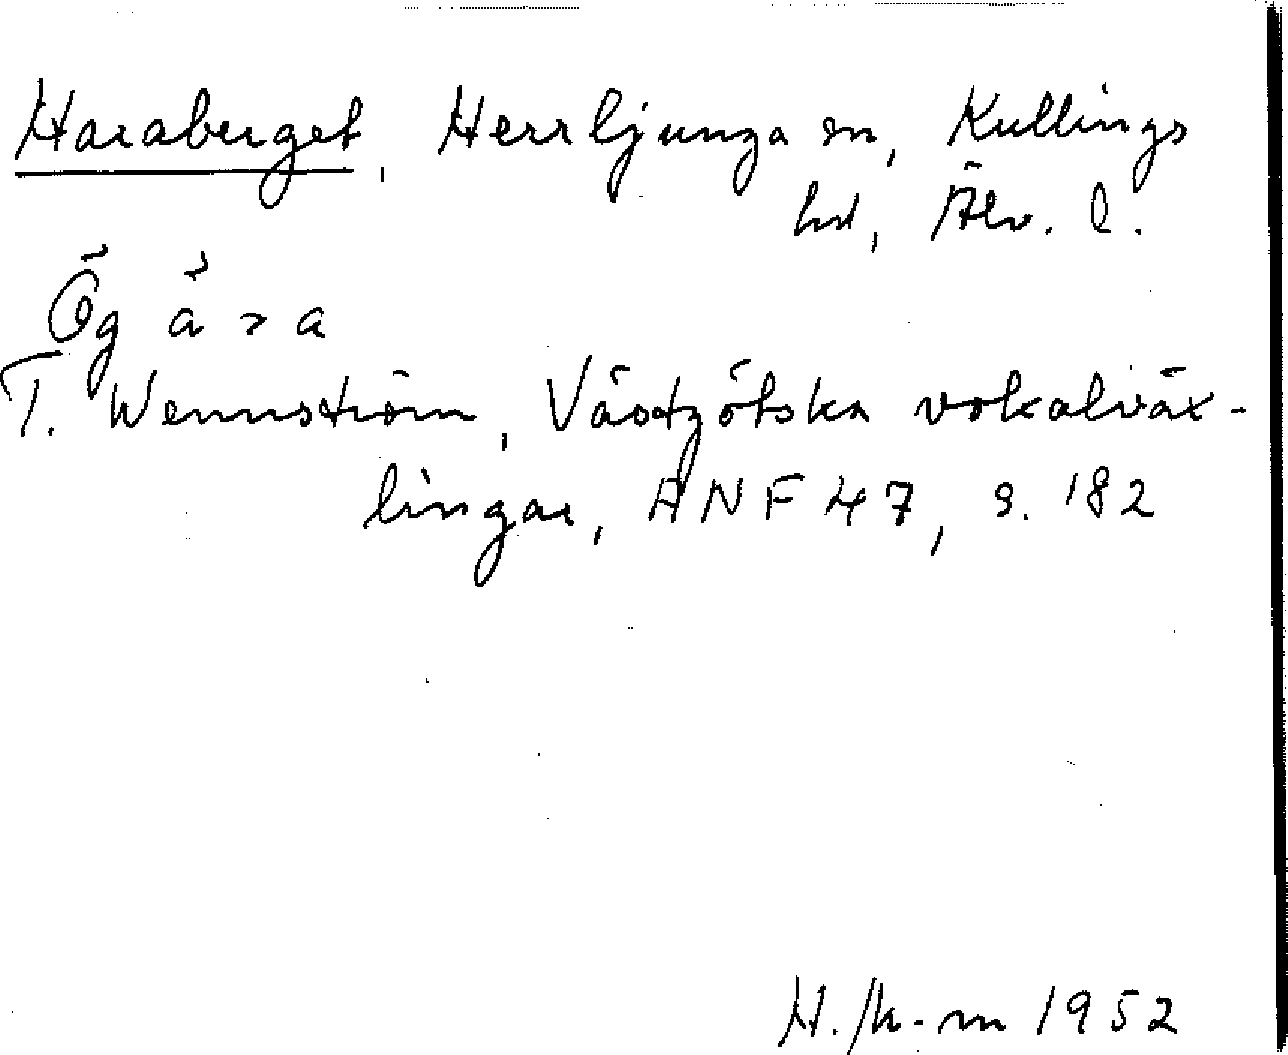 Haraberget, Herrljunga sn, Kullings
hd, Älv. l.
Ög ä > a
T. Wennström, Västgötska vokalväx-
lingar, ANF 47, s. 182
H./k-m 1952